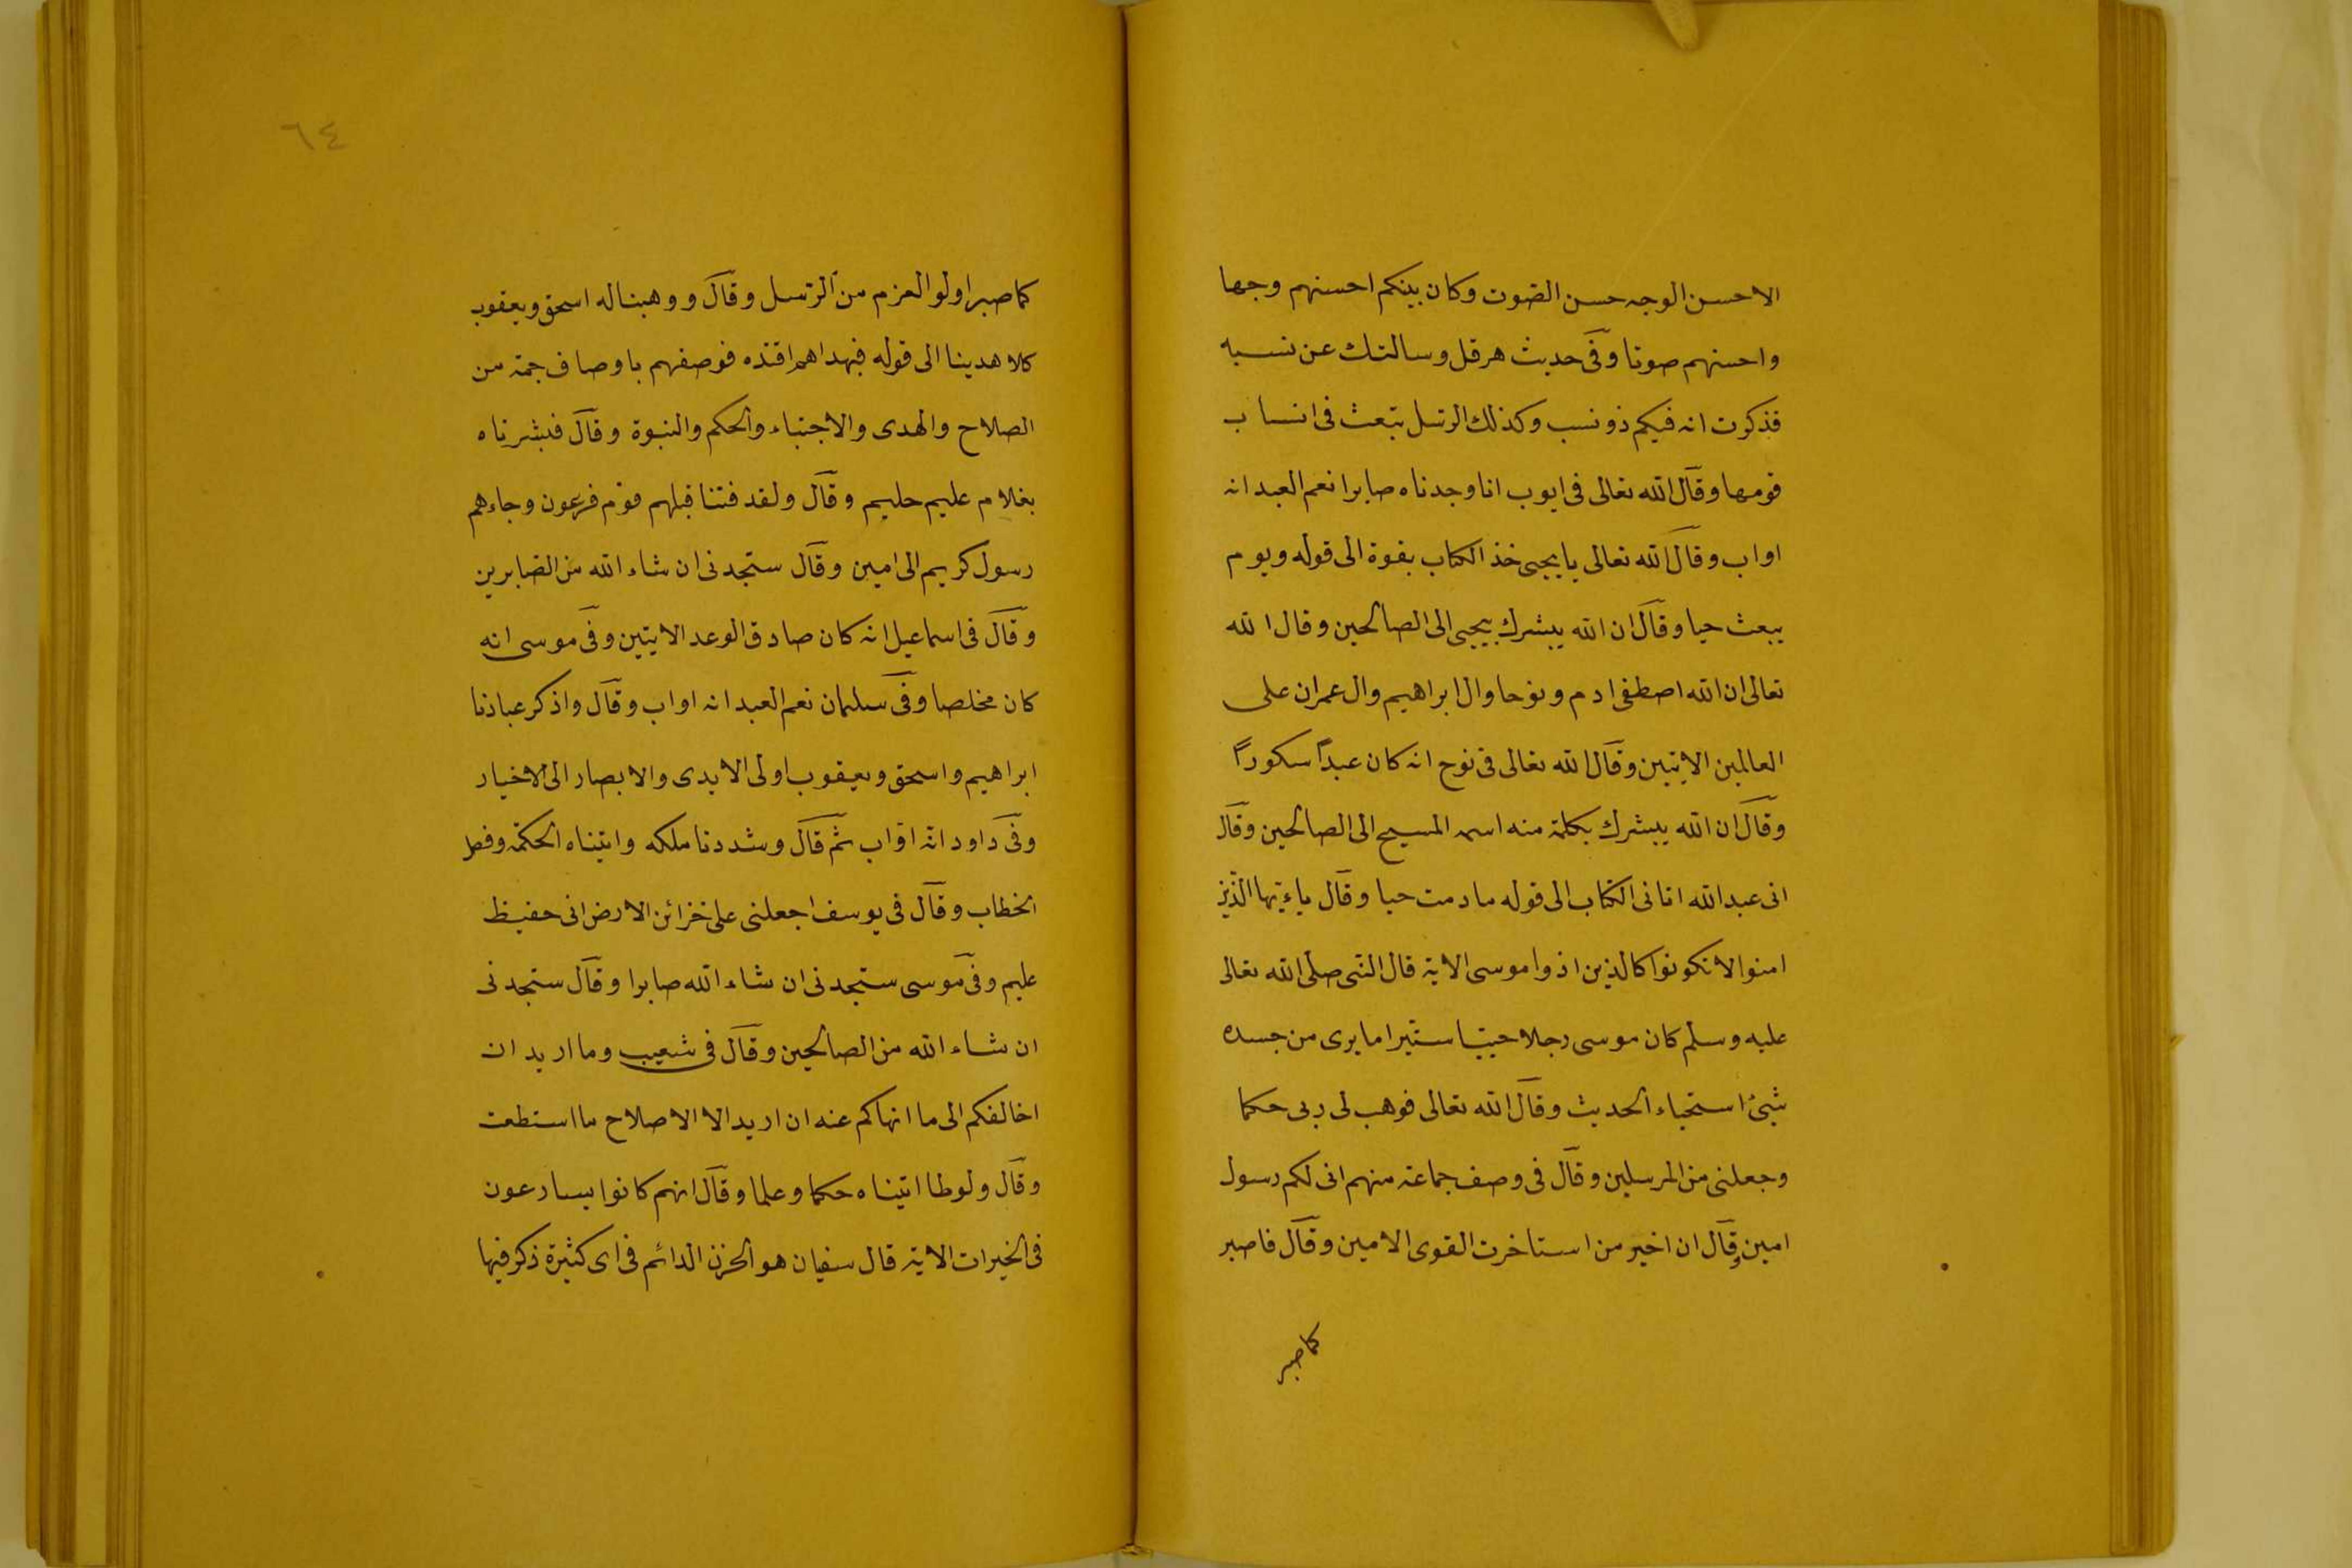 الاحسن الوجه حسن الصوت وكان بينكم احسنهم وجها
واحسنهم صوتا وفى حديث هرقل وسالتك عن نسبه
فذكرت انه فيكم ذو نسب وكذلك الرسل تبعث فى انساب
قومها وقال الله تعالى فى ايوب انا وجدناه صابرا نعم العبد انه
اواب وقال الله تعالى يا يحيى خذ الكتاب بقوة الى قوله ويوم
يبعث حيا وقال ان الله يبشرك بيحيى الى الصالحين وقال الله
تعالى ان الله اصطفى ادم ونوحا وال ابراهيم وال عمران على
العالمين الايتين وقال الله تعالى فى نوح انه كان عبداً سكوراً
وقال ان الله يبشرك بكلمة منه اسمه المسيح الى الصالحين وقال
انى عبد الله اتانى الكتاب الى قوله ما دمت حيا وقال ياءيها الذين
امنوا لا تكونوا كالذين اذوا موسى الاية قال النبى صلى الله تعالى
عليه وسلم كان موسى رجلا حييا ستيرا ما يرى من جسده
شئ استحياء الحديث وقال الله تعالى فوهب لى ربى حكما
وجعلنى من المرسلين وقال فى وصف جماعة منهم انى لكم رسول
امين وقال ان اخير من استاخرت القوى الامين وقال فاصبر
كما صبر
٦٤
كما صبر اولو العزم من الرسل وقال ووهبنا له اسحق ويعقوب
كلا هدينا الى قوله فبهداهم اقتده فوصفهم باوصاف جمة من
الصلاح والهدى والاجتباء والحكم والنبوة وقال فبشرناه
بغلام عليم حليم وقال ولقد فتنا قبلهم قوم فرعون وجاءهم
رسول كريم الى امين وقال ستجدنى ان شاء الله من الصابرين
وقال فى اسماعيل انه كان صادق الوعد الايتين وفى موسى انه
كان مخلصا وفى سليمان نعم العبد انه اواب وقال واذكر عبادنا
ابراهيم واسحق ويعقوب اولى الايدى والابصار الى الاخيار
وفى داود انه اواب ثم قال وشددنا ملكه واتيناه الحكمة وفصل
الخطاب وقال فى يوسف اجعلنى على خزائن الارض انى حفيظ
عليم وفى موسى ستجدنى ان شاء الله صابرا وقال ستجدنى
ان شاء الله من الصالحين وقال فى شعيب وما اريد ان
اخالفكم الى ما انهاكم عنه ان اريد الا الاصلاح ما استطعت
وقال ولوطا اتيناه حكما وعلما وقال انهم كانوا يسارعون
فى الخيرات الاية قال سفيان هو الحزن الدائم فى اى كثيرة ذكر فيها